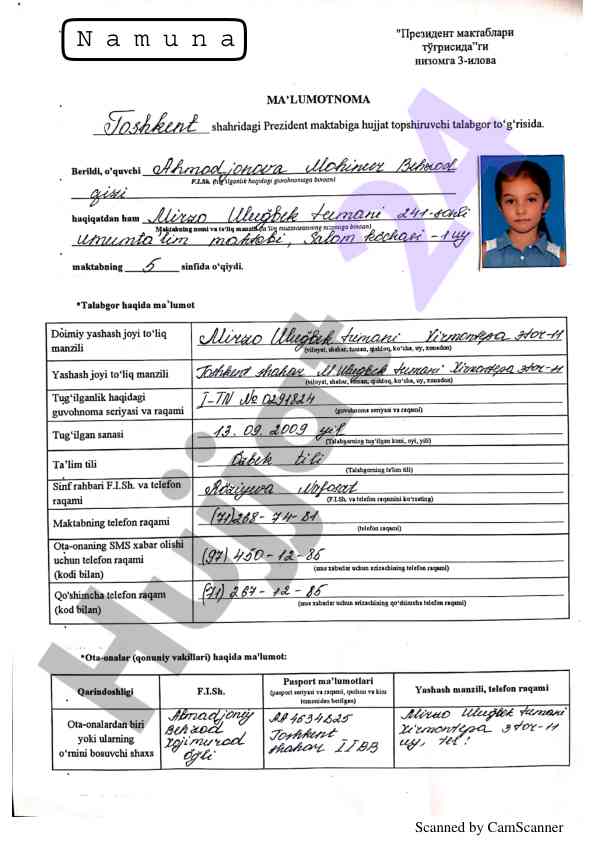 Namuna
"Президент мактаблари
тўғрисида"ги
низомга 3-илова
MA'LUMOTNOMA
Toshkent shahridagi Prezident maktabiga hujjat topshiruvchi talabgor to'g'risida.
Berildi, o'quvchi Ahmadjonova Mohinur Behzod
F.I.Sh. (tug'ilganlik haqidagi guvohnomaga binoan)
qizi
haqiqatdan ham Mirzo Ulug'bek tumani 241-sonli
Maktabning nomi va to'liq manzili
umumta'lim maktabi, Salom ko'chasi - 1 uy
maktabning 5 sinfida o'qiydi.
*Talabgor haqida ma'lumot
Doimiy yashash joyi to'liq manzili Mirzo Ulug'bek tumani Xirmontepa 3tor-11
(viloyat, shahar, tuman, qishloq, ko'cha, uy, xonadon)
Yashash joyi to'liq manzili Toshkent shahar M Ulug'bek tumani Xirmontepa 3tor-11
(viloyat, shahar, tuman, qishloq, ko'cha, uy, xonadon)
Tug'ilganlik haqidagi guvohnoma seriyasi va raqami I-TN № 0291824
(guvohnoma seriyasi va raqami)
Tug'ilgan sanasi 13.09.2009 yil
(Talabgorning tug'ilgan kuni, oyi, yili)
Ta'lim tili O'zbek tili
(Talabgorning ta'lim tili)
Sinf rahbari F.I.Sh. va telefon raqami Ro'ziyeva Nafosat
(F.I.Sh. va telefon raqamini ko'rsating)
Maktabning telefon raqami (71)268-74-81
(telefon raqami)
Ota-onaning SMS xabar olishi uchun telefon raqami (kodi bilan) (97) 450-12-85
(sms xabarlar uchun arizachining telefon raqami)
Qo'shimcha telefon raqam (kod bilan) (71) 267-12-85
(sms xabarlar uchun arizachining qo'shimcha telefon raqami)
*Ota-onalar (qonuniy vakillari) haqida ma'lumot:
Qarindoshligi F.I.Sh. Pasport ma'lumotlari Yashash manzili, telefon raqami
(pasport seriyasi va raqami, qachon va kim tomonidan berilgan)
Ota-onalardan biri yoki ularning o'rnini bosuvchi shaxs
Ahmadjonov
Behzod
Xojimurod
O'g'li
AA4634825
Toshkent
shahar IIBB
Mirzo Ulug'bek tumani
Xirmontepa 3tor-11
uy, tel:
Hujjat 24
Scanned by CamScanner